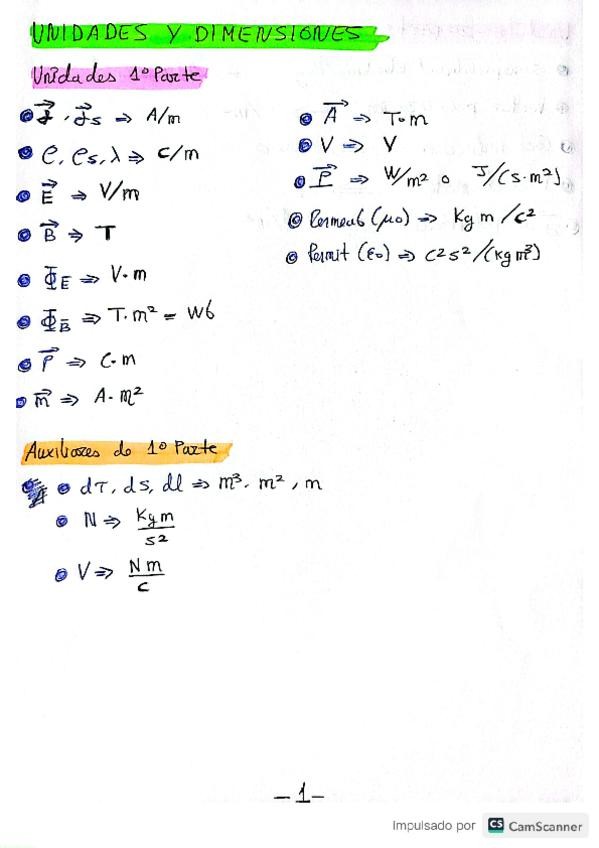 UNIDADES Y DIMENSIONES
Unidades 1º Parte
J⃗, J⃗s ⇒ A/m
ρ, ρs, λ ⇒ C/m
E⃗ ⇒ V/m
B⃗ ⇒ T
ΦE ⇒ V·m
ΦB̄ ⇒ T·m² = Wb
P⃗ ⇒ C·m
m⃗ ⇒ A·m²
A⃗ ⇒ T·m
V ⇒ V
P⃗ ⇒ W/m² o J/(s·m²)
Permeab (μ0) ⇒ Kg m/C²
Permit (ε0) ⇒ C²s²/(Kg m³)
Auxiliares de 1º Parte
dτ, ds, dl ⇒ m³, m², m
N ⇒ Kg m / s²
V ⇒ N m / C
-1-
Impulsado por CS CamScanner